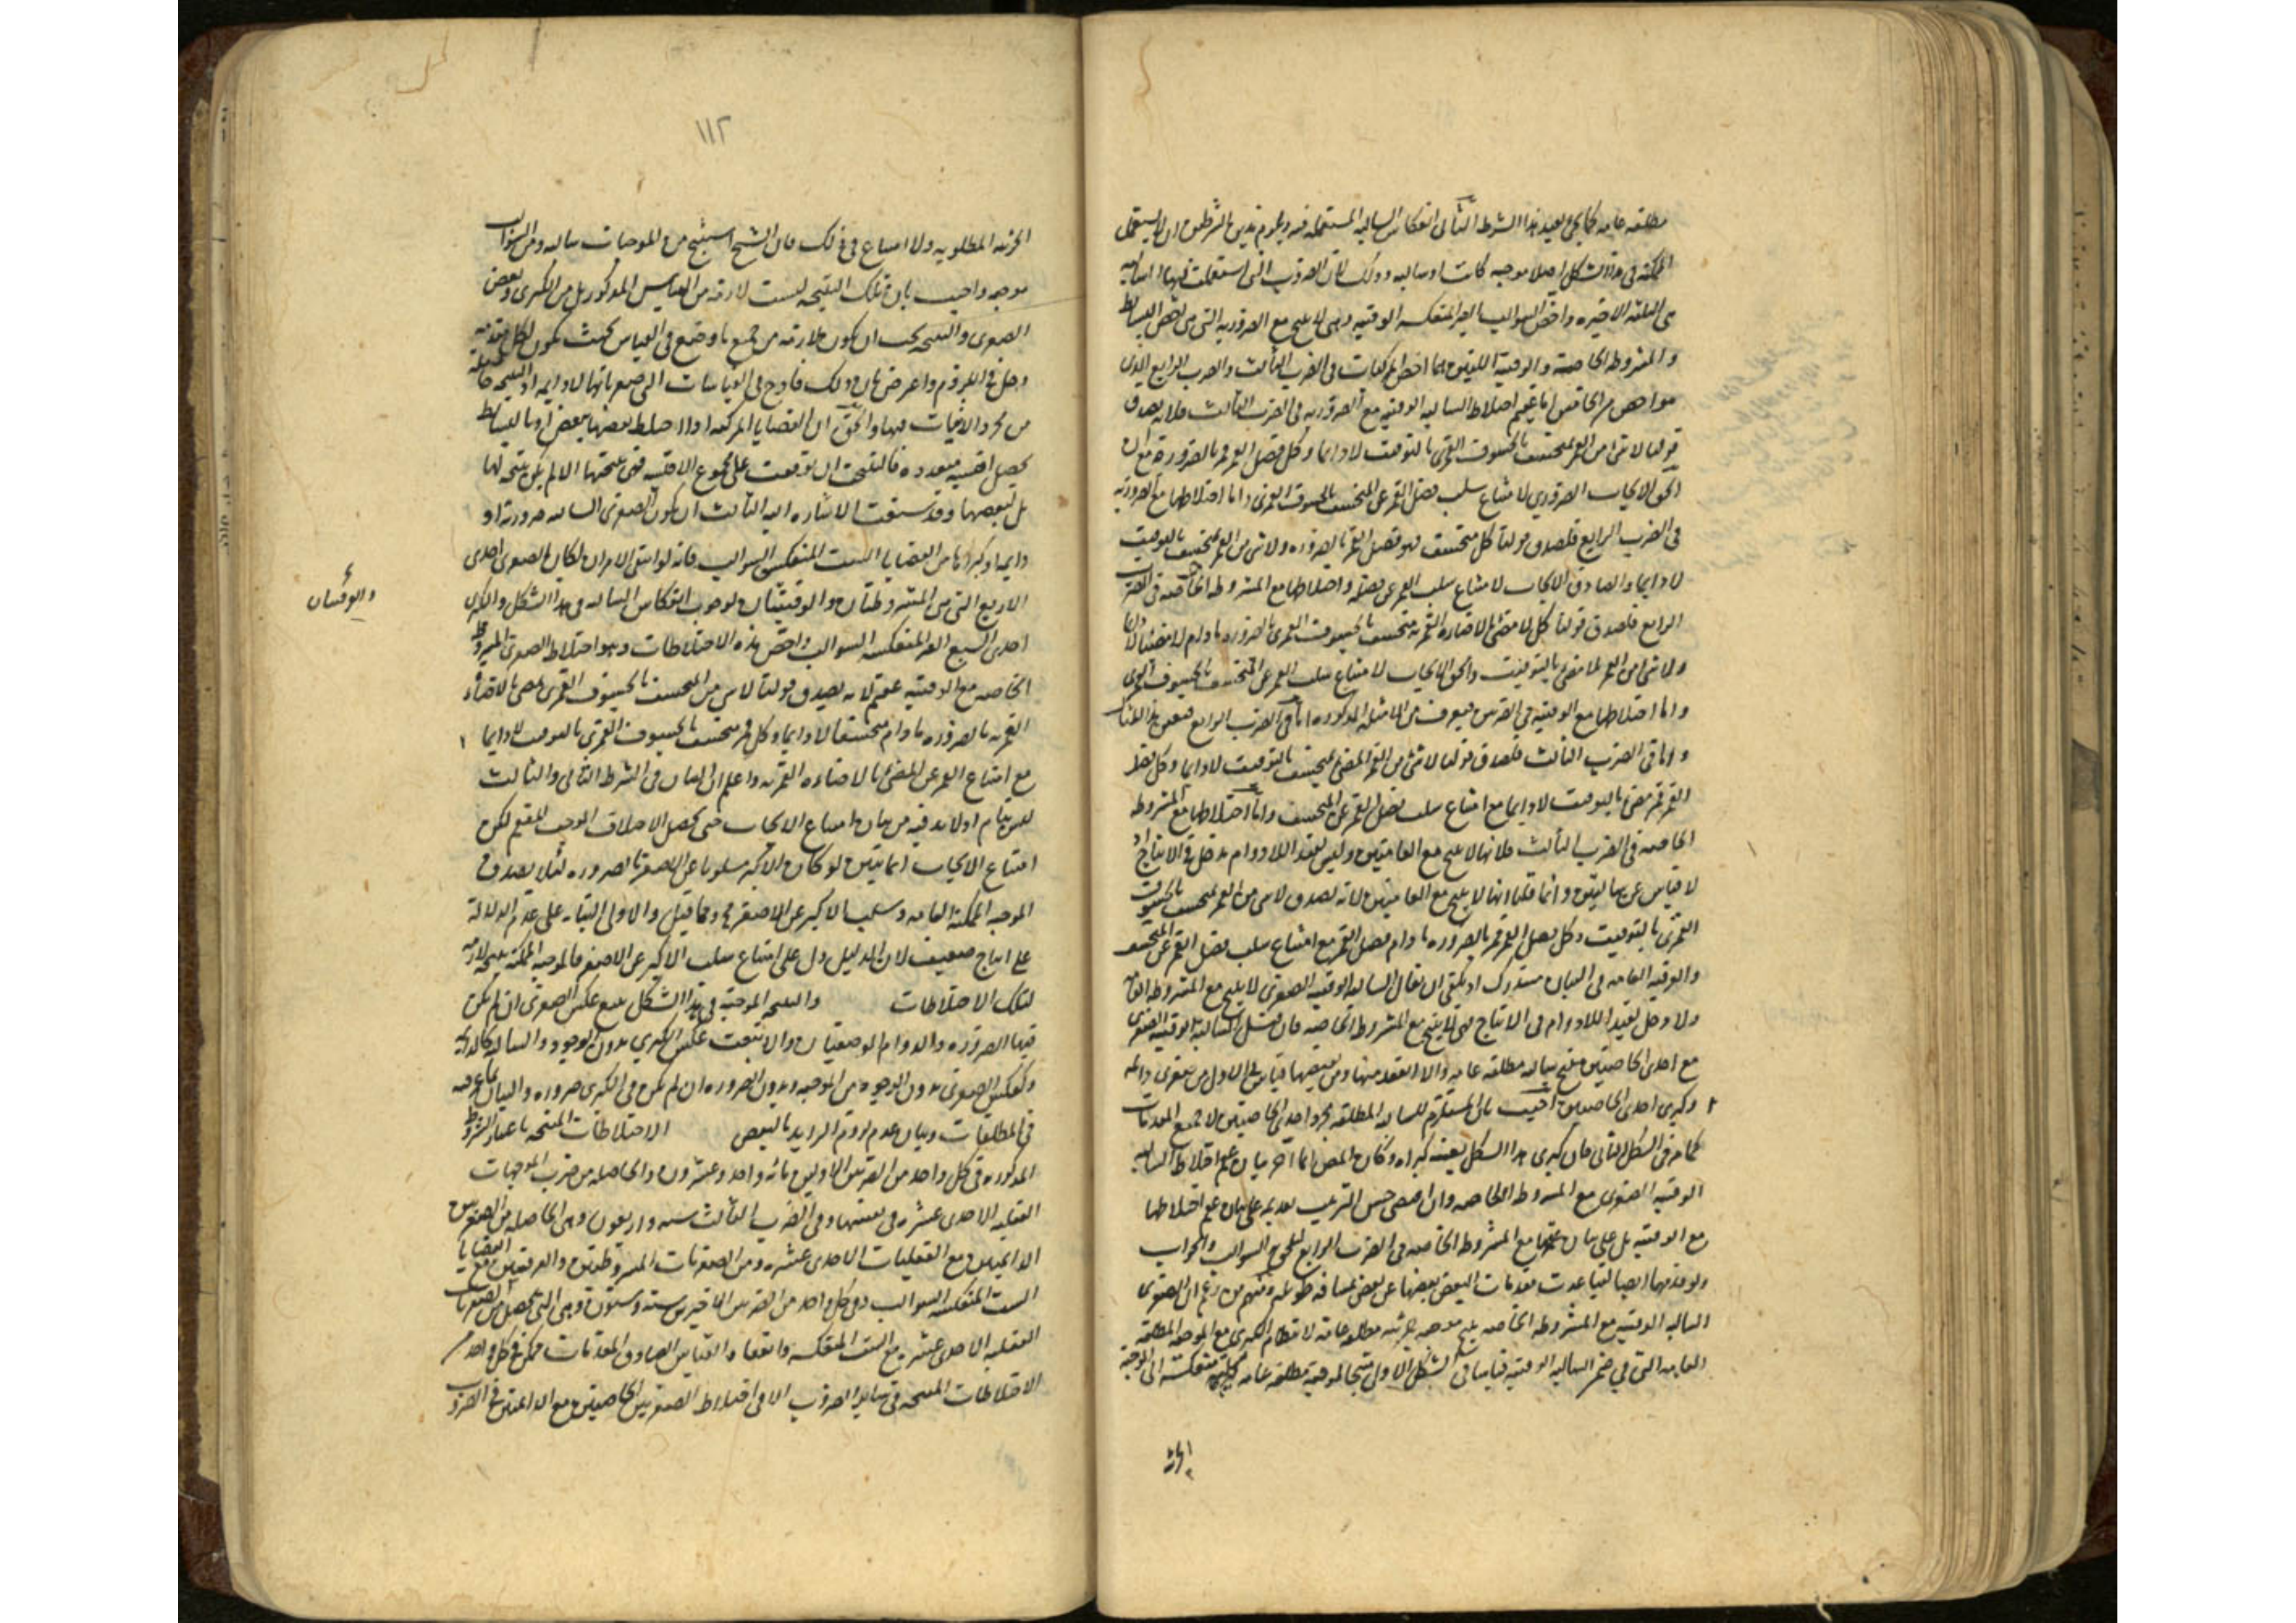 مطلقة عامة كما يجئ بعيد هذا الشرط الثانى انعكاس السالبة المستعملة فيه ويلزم من هذين الشرطين ان لا يستعمل
الممكنة فى هذا الشكل اصلا موجبة كانت او سالبة وذلك لان الضروب التى استعملت فيها السالبة
هى الثلثة الاخيرة واخص السوالب الغير المنعكسة الوقتية وهى لا ينتج مع الضرورية التى هى اخص البسايط
والمشروطة الخاصة والوقتية اللتين هما اخص المركبات فى الضرب الثالث والضرب الرابع اللذين
هما اخص من الخامس اما عقم اختلاط السالبة الوقتية مع الضرورية فى الضرب الثالث فلانه يصدق
قولنا لا شئ من القمر بمنخسف بالخسوف القمرى بالتوقيت لا دايما وكل فصل القمر قمر بالضرورة مع ان
الحق الايجاب الضرورى لامتناع سلب فصل القمر عن المنخسف بالخسوف القمرى واما اختلاطها مع الضرورية
فى الضرب الرابع فلصدق قولنا كل منخسف فهو فصل القمر بالضرورة ولا شئ من القمر بمنخسف بالتوقيت
لا دايما والصادق الايجاب لامتناع سلب القمر عن فصله واختلاطها مع المشروطة الخاصة فى الضرب
الرابع فلصدق قولنا كل مضئ بالاضاءة القمرية منخسف بالخسوف القمرى بالضرورة ما دام لا مضيئا لا دايما
ولا شئ من القمر بمضئ بالتوقيت والحق الايجاب لامتناع سلب القمر عن المنخسف بالخسوف القمرى
واما اختلاطها مع الوقتية فى الضربين فيعرف من الامثلة المذكورة اما فى الضرب الرابع فبعين هذا المثال
واما فى الضرب الثالث فلصدق قولنا لا شئ من القمر المضئ بمنخسف بالتوقيت لا دايما وكل فصل
القمر قمر مضئ بالتوقيت لا دايما مع امتناع سلب فصل القمر عن المنخسف واما اختلاطها مع المشروطة
الخاصة فى الضرب الثالث فلانها لا ينتج مع العامتين وليس لقيد اللادوام مدخل فى الانتاج اذ
لا قياس عن سالبتين وانما قلنا انها لا ينتج مع العامتين لانه يصدق لا شئ من القمر بمنخسف بالخسوف
القمرى بالتوقيت وكل فصل القمر قمر بالضرورة ما دام فصل القمر مع امتناع سلب فصل القمر عن المنخسف
والوقتية العامة فى البيان مستدرك اذ يكفى ان يقال السالبة الوقتية الصغرى لا ينتج مع المشروطة العامة
ولا دخل لقيد اللادوام فى الانتاج فهى لا ينتج مع المشروطة الخاصة فان قيل السالبة الوقتية الصغرى
مع احدى الخاصتين ينتج سالبة مطلقة عامة والا انعقد منها ومن نقيضها قياس فى الاول من صغرى دائمة
وكبرى احدى الخاصتين اجيب بان المستلزم للسالبة المطلقة مجرد احدى الخاصتين لا جميع المقدمات
كما مر فى الشكل الثانى فان كبرى هذا الشكل بعينه كبراه وكان المصنف انما آخر بيان عقم اختلاط السالبة
الوقتية الصغرى مع المشروطة الخاصة وان اقتضى حسن الترتيب تقديمه على بيان عقم اختلاطها
مع الوقتية بل على بيان عقمها مع المشروطة الخاصة فى الضرب الرابع للحوق السوال والجواب
ولو قدمهما ايضا لتباعدت مقدمات البعض بعضها عن بعض مسافة طويلة ومنهم من زعم ان الصغرى
السالبة الوقتية مع المشروطة الخاصة ينتج موجبة جزئية مطلقة عامة لانتظام الكبرى مع الموجبة المطلقة
العامة التى فى ضمن السالبة الوقتية قياسا فى الشكل الاول منتجا لموجبة مطلقة عامة كلية منعكسة الى الموجبة
الجزئية
١١٢
الجزئية المطلوبة ولا امتناع فى ذلك فان الشيخ استنتج من الموجبات سالبة ومن السوالب
موجبة واجيب بان تلك النتيجة ليست لازمة من القياس المذكور بل من الكبرى وبعض
الصغرى والنتيجة يجب ان يكون لازمة من جميع ما وضع فى القياس بحيث يكون لكل مقدمة
دخل فى اللزوم واعترض بان ذلك قادح فى القياسات التى صغرياتها لا دايمة اذ النتيجة حاصلة
من مجرد الاثبات فيها والحق ان القضايا المركبة اذا اختلط بعضها ببعض او بالبسايط
يحصل اقيسة متعددة فالنتيجة ان توقفت على مجموع الاقيسة فهى نتيجتها والا لم يكن نتيجة لها
بل لبعضها وقد سبقت الاشارة اليه الثالث ان يكون الصغرى السالبة ضرورية او
دايمة او كبراها من القضايا الست المنعكسة السوالب فانه لو انتفى الامران لكان الصغرى احدى
الاربع التى هى المشروطتان والوقتيتان لوجوب انعكاس السالبة فى هذا الشكل والكبرى
والعرفيتان
احدى السبع الغير المنعكسة السوالب واخص هذه الاختلاطات وهو اختلاط الصغرى المشروطة
الخاصة مع الوقتية عقيم لانه يصدق قولنا لا شئ من المنخسف بالخسوف القمرى بمضئ بالاضاءة
القمرية بالضرورة ما دام منخسفا لا دايما وكل قمر منخسف بالخسوف القمرى بالتوقيت لا دايما
مع امتناع سلب القمر عن المضئ بالاضاءة القمرية واعلم ان البيان فى الشرط الثانى والثالث
ليس بتام اذ لا بد فيه من بيان امتناع الايجاب حتى يحصل الاختلاف الموجب للعقم لكن
امتناع الايجاب انما يتبين لو كان الاكبر مسلوبا عن الاصغر بالضرورة لئلا يصدق
الموجبة الممكنة العامة وسلب الاكبر عن الاصغر
على انتاج ضعيف لان الدليل دل على امتناع سلب الاكبر عن الاصغر فالموجبة الممكنة نتيجة لازمة
لتلك الاختلاطات والنتيجة الموجبة فى هذا الشكل تتبع عكس الصغرى ان لم يكن
فيها الضرورة والدوام الوصفيان والا تتبعت عكس الكبرى بدون الوجود والسالبة كالدايمة
وكعكس الصغرى بدون الوجود من الموجبة وبدون الضرورة ان لم يكن فى الكبرى ضرورة والبيان بما عرفته
فى المطلقات وبيان عدم لزوم الزايد بالنقض الاختلاطات المنتجة باعتبار الشروط
المذكورة فى كل واحد من الضربين الاولين مائة واحد وعشرون والحاصلة من ضرب الموجبات
الفعلية الاحدى عشرة فى نفسها وفى الضرب الثالث ستة واربعون وهى الحاصلة من الصغريين
الدائمتين مع الفعليات الاحدى عشرة ومن الصغريات المشروطتين والعرفيتين مع القضايا
الست المنعكسة السوالب وفى كل واحد من الضربين الاخيرين ستة وستون وهى التى تحصل من الصغريات
الفعلية الاحدى عشرة مع الست المنعكسة وانعقاد القياس الصادق المقدمات ممكن فى كل واحد من
الاختلاطات المنتجة فى ساير الضروب الا فى اختلاط الصغريين الخاصتين مع الدائمتين فى الضرب